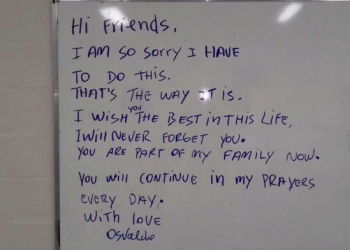 Hi Friends,
I AM SO SORRY I HAVE
TO DO THIS.
THAT'S THE WAY IT IS.
I WISH YOU THE BEST IN THIS LIFE,
I WILL NEVER FORGET YOU.
YOU ARE PART OF MY FAMILY NOW.
YOU WILL CONTINUE IN MY PRAYERS
EVERY DAY.
WITH LOVE
Osvaldo